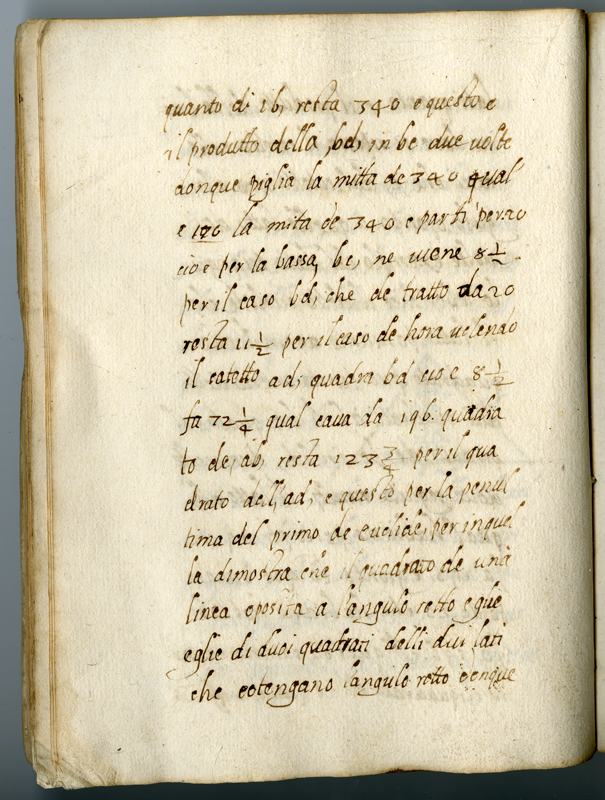 quanto di ·ib, resta 340 e questo e
il produtto della ,bd, in be due volte
donque piglia la mitta de 340 qual
e 170 la mita de 340 e parti per 20
cioe per la bassa, bc, ne viene 8 1/2
per il caso bd, che de tratto da 20
resta 11 1/2 per il caso de hora volendo
il catetto ad, quadra bd cioe 8 1/2
fa 72 1/4 qual cava da 196. quadra
to de, ab, resta 123 3/4 per il qua
drato dell,ad, e questo per la penul
tima del primo de Euclide, per in quel
la dimostra che il quadrato de una
linea oposita a l'angulo retto e que
eglie di duoi quadrati delli dui lati
che cotengano l'angulo retto